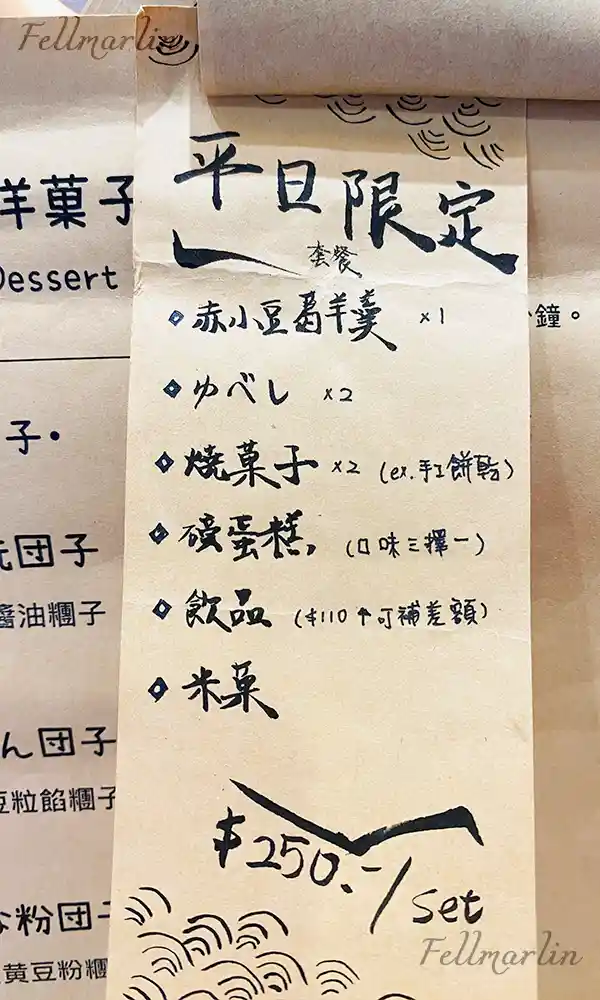 Fellmarlin
洋菓子
Dessert
平日限定
套餐
赤小豆葛羊羹 x1
鐘。
ゆべし x2
子・
燒菓子 x2 (ex.手工餅乾)
磅蛋糕, (口味三擇一)
団子
飲品 ($110↑可補差額)
醬油糰子
米菓
ん団子
豆粒餡糰子
$250.-/set
な粉団子
黄豆粉糰
Fellmarlin